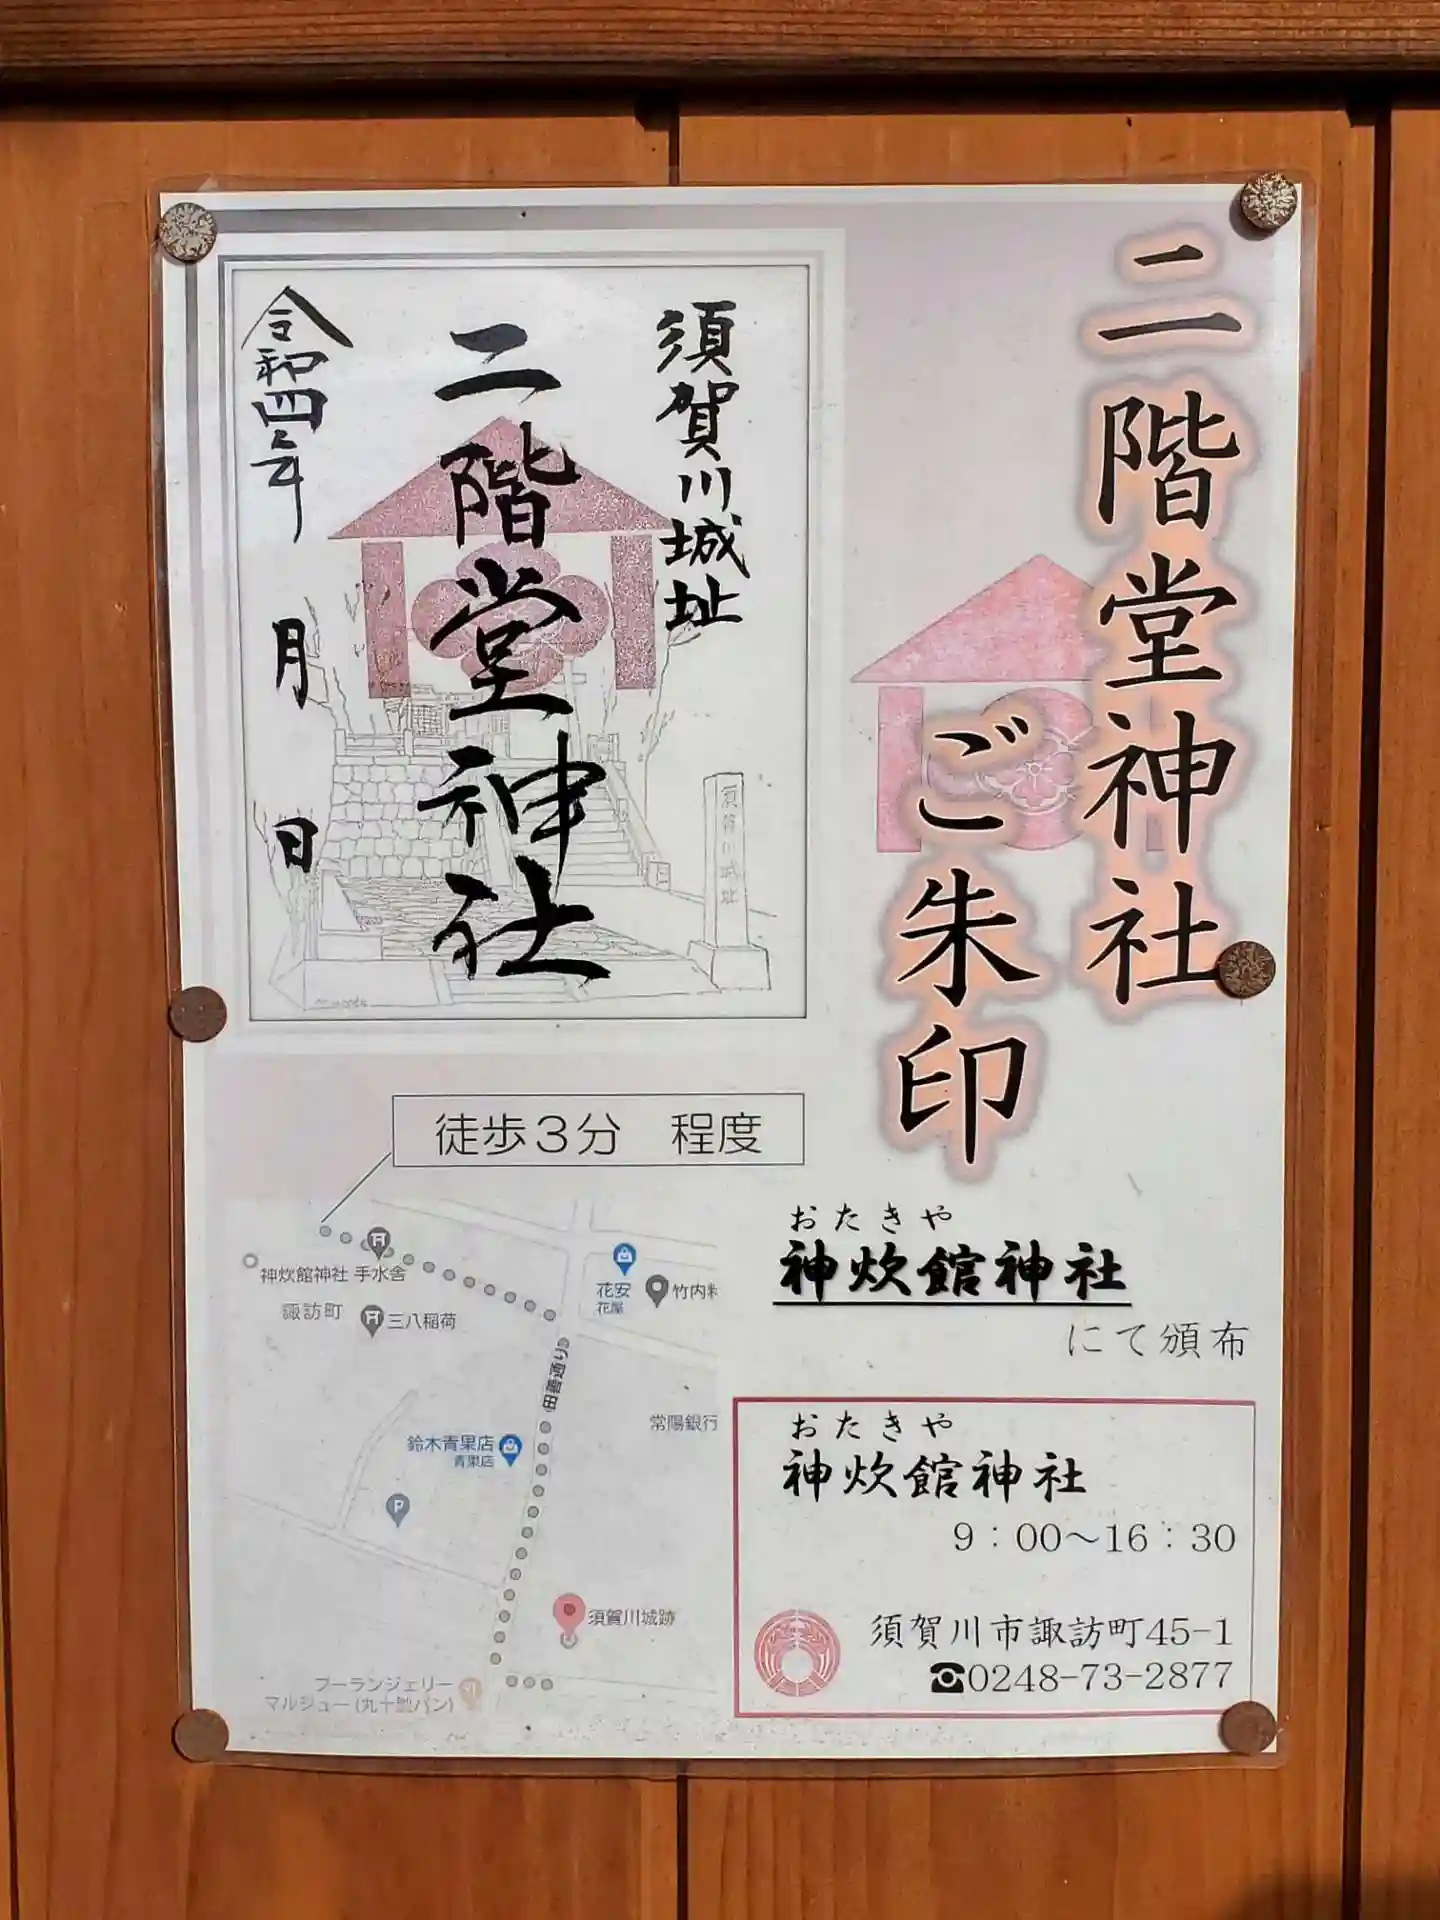 二階堂神社
ご朱印
須賀川城址
二階堂神社
令和四年 月 日
須賀川城址
徒歩3分 程度
神炊館神社 手水舎
諏訪町
三八稲荷
花安
花屋
竹内
田善通り
常陽銀行
鈴木青果店
青果店
P
須賀川城跡
ブーランジェリー
マルジュー (丸十製パン)
おたきや
神炊館神社
にて頒布
おたきや
神炊館神社
9：00～16：30
須賀川市諏訪町45-1
☎0248-73-2877